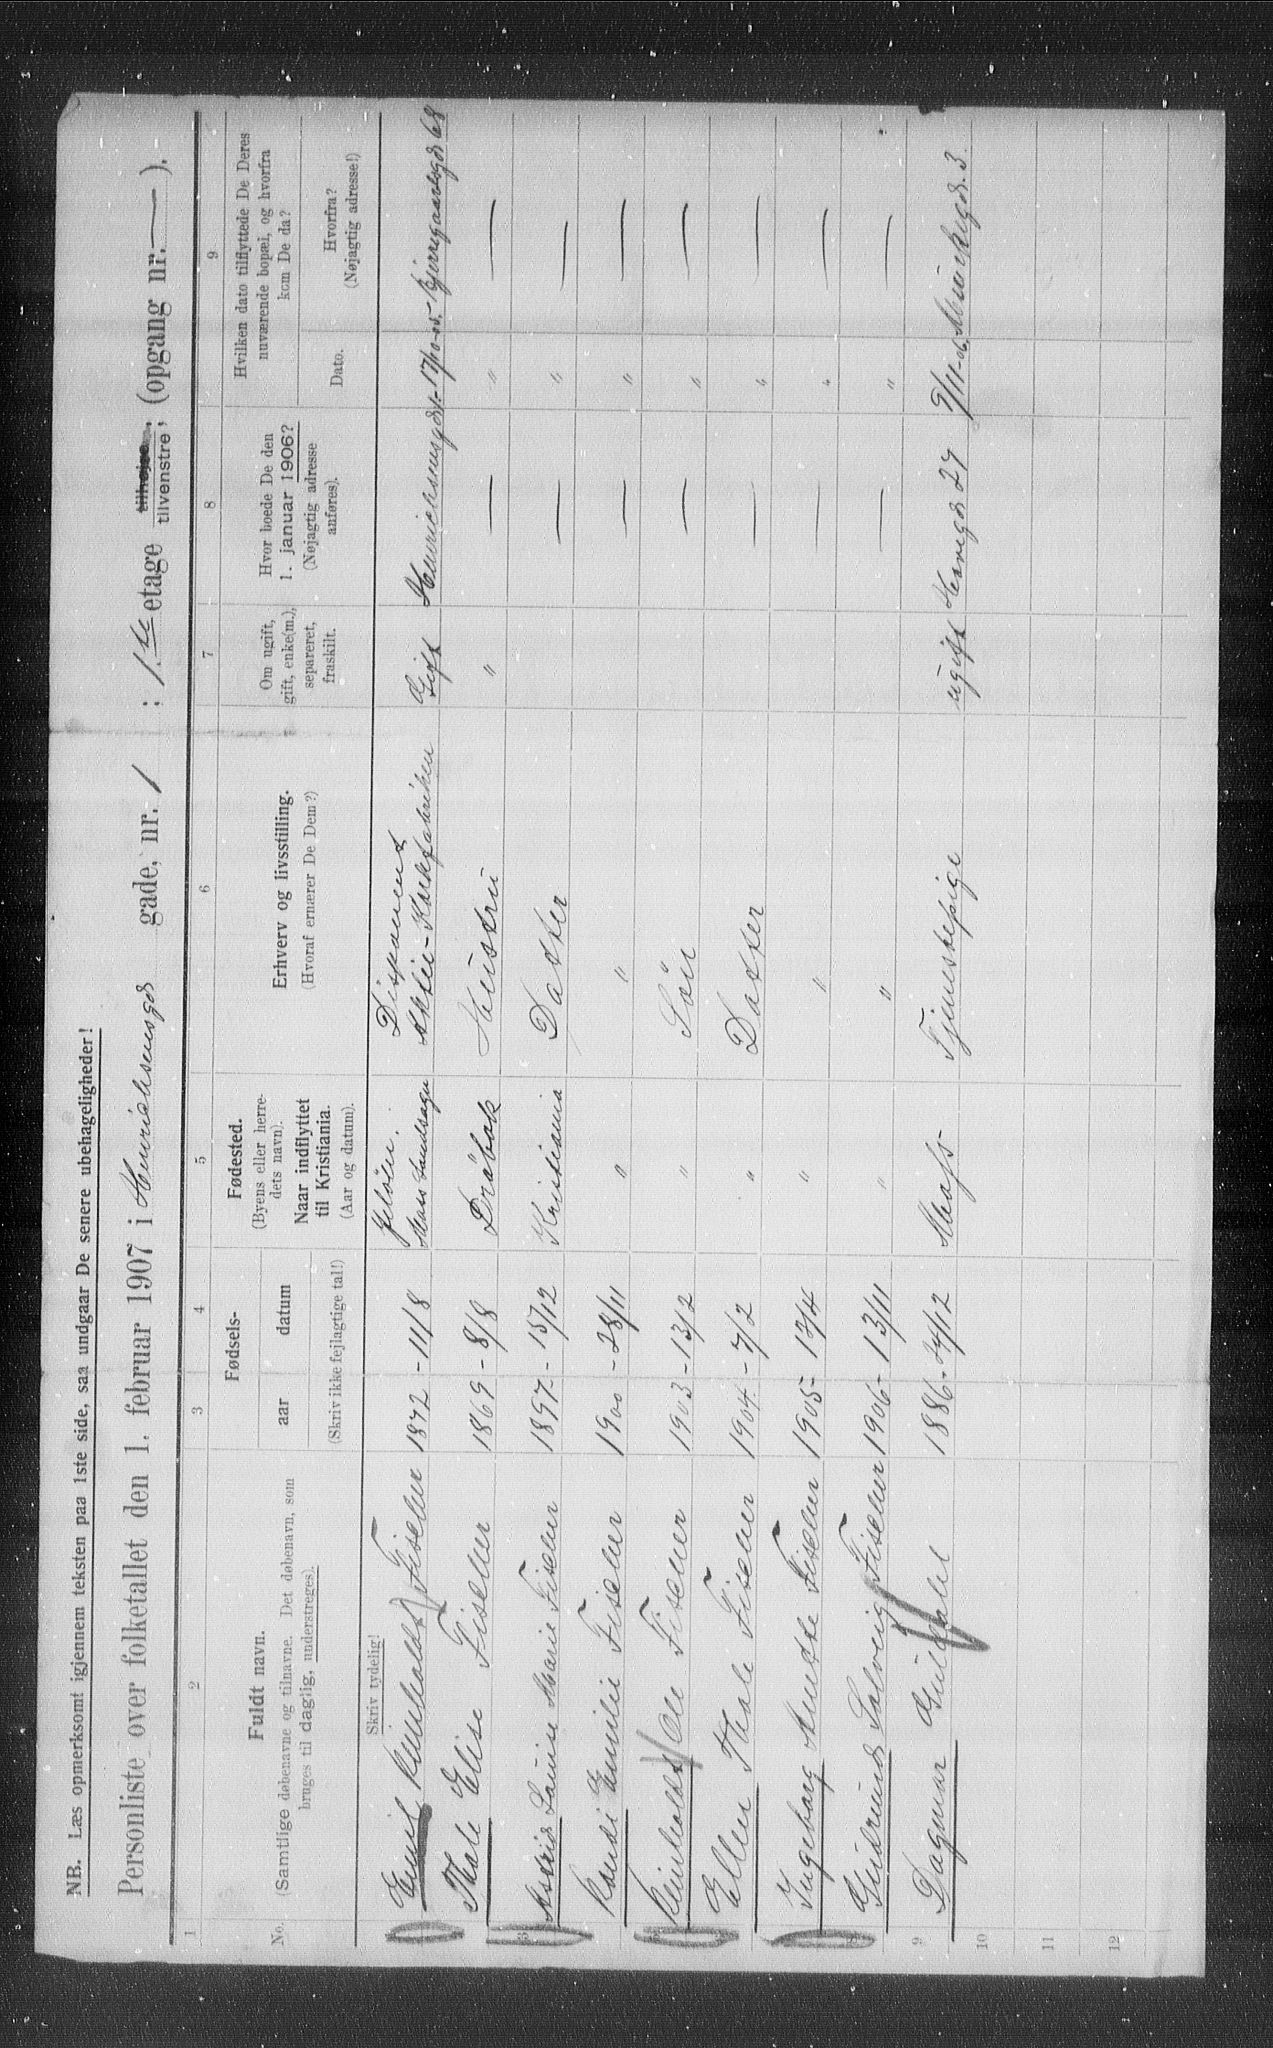 NB. Læs opmerksomt igjennem teksten paa 1ste side, saa undgaar De senere ubehageligheder!
Personliste over folketallet den 1. februar 1907 i Henrichsensgd gade, nr. 1 ; 1.ste etage tilhøjre, tilvenstre, (opgang nr. — ).
1 2 3 4 5 6 7 8 9
No. Fuldt navn. (Samtlige døbenavne og tilnavne. Det døbenavn, som bruges til daglig, understreges).
Fødsels- aar datum
Fødested. (Byens eller herredets navn). Naar indflyttet til Kristiania. (Aar og datum).
Erhverv og livsstilling. (Hvoraf ernærer De Dem?)
Om ugift, gift, enke(m.), separeret, fraskilt.
Hvor boede De den 1. januar 1906? (Nøjagtig adresse anføres).
Hvilken dato tilflyttede De Deres nuværende bopæl, og hvorfra kom De da?
Dato. Hvorfra? (Nøjagtig adresse!)
Skriv tydelig! (Skriv ikke fejlagtige tal!)
Emil Reinholdt Fischer 1872 - 11/8 Jeløen. Moss Landsogn Disponent Aktie-Korkfabriken Gift Henrichsensgd 1. 17/10-05. Kjerregaardsgd 68
Thale Elise Fischer 1869 - 8/8 Drøbak Hustru " — " —
3 Astrid Louise Marie Fischer 1897 - 15/12 Kristiania Datter — " —
Randi Emilie Fischer 1900 - 28/11 " " — " —
Reinholdt Ole Fischer 1903 - 13/2 " Søn — " —
Ellen Thale Fischer 1904 - 7/2 " Datter — " —
Ingeborg Anette Fischer 1905 - 12/4 " " — " —
8 Gudrund Solveig Fischer 1906 - 13/11 " " — " —
9 Dagmar Guldahl 1886 - 24/12 Moss- Tjenestepige ugift 27 9/11-06. Munchsgd. 3
10
11
12